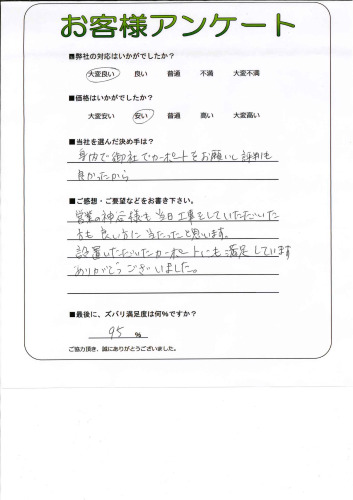 お客様アンケート
■弊社の対応はいかがでしたか？
大変良い 良い 普通 不満 大変不満
■価格はいかがでしたか？
大変安い 安い 普通 高い 大変高い
■当社を選んだ決め手は？
身内で御社でカーポートをお願いし評判も
良かったから
■ご感想・ご要望などをお書き下さい。
営業の神谷様も当日工事をしていただいた
方も良い方に当たったと思います。
設置いただいたカーポートにも満足しています
ありがとうございました。
■最後に、ズバリ満足度は何%ですか？
95 %
ご協力頂き、誠にありがとうございました。